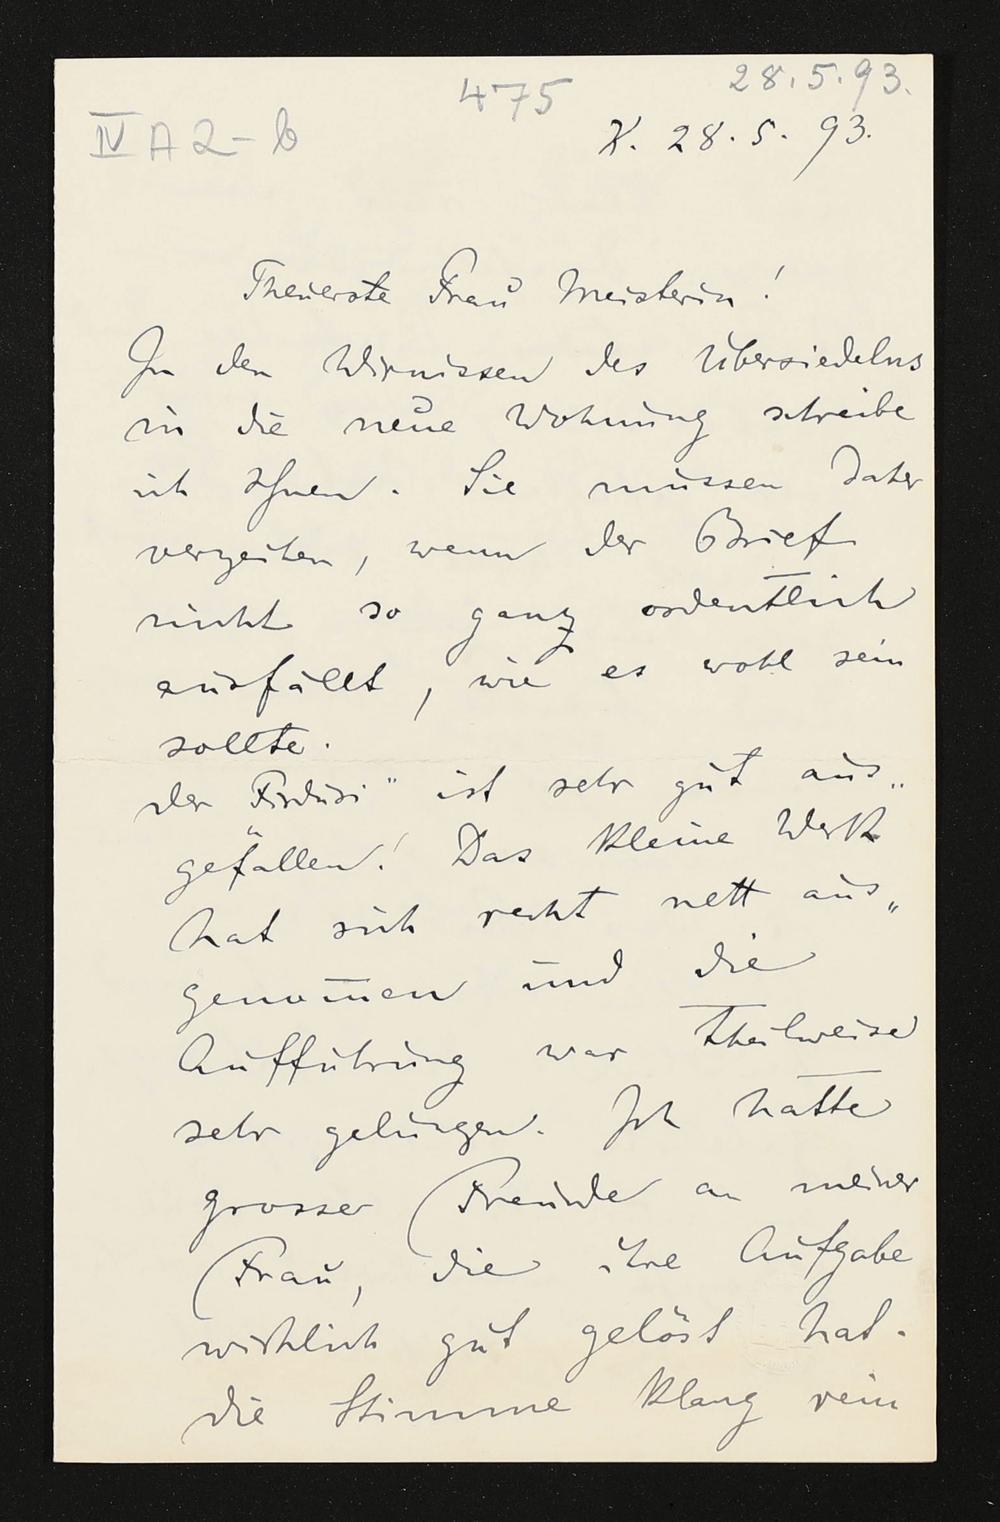 475
28.5.93.
IV A 2-b
K. 28.5.93.
Theuerste Frau Meisterin!
In den Wirnissen des Übersiedelns
in die neue Wohnung schreibe
ich Ihnen. Sie müssen daher
verzeihen, wenn der Brief
nicht so ganz ordentlich
ausfällt, wie es wohl sein
sollte.
der „Firdusi" ist sehr gut aus„
gefallen! Das kleine Werk
hat sich recht nett aus„
genom̅en und die
Aufführung war theilweise
sehr gelungen. Ich hatte
grosse Freude an meiner
Frau, die ihre Aufgabe
wirklich gut gelöst hat.
die Stimme klang rein